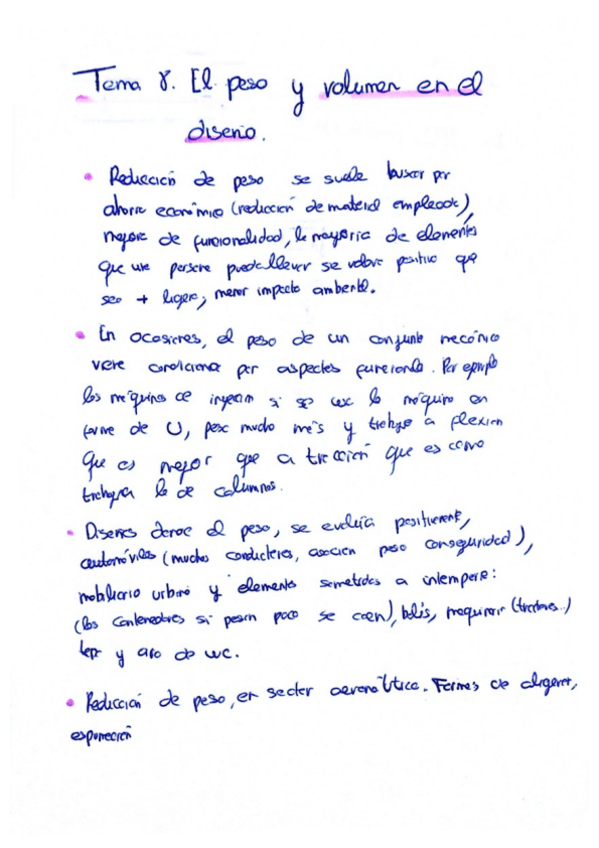 Tema 8. El peso y volumen en el
diseño.
• Reducción de peso se suele buscar por
ahorro económico (reducción de material empleado),
mejora de funcionalidad, la mayoría de elementos
que una persona pueda llevar se valora positivo que
sea + ligero, menor impacto ambiental.
• En ocasiones, el peso de un conjunto mecánico
viene condiciona por aspectos funcionales. Por ejemplo
las máquinas de inyeccin si se usa la máquina en
forma de U, pesa mucho más y trabaja a flexion
que es mejor que a tracción que es como
trabaja la de columnas.
• Diseños donde el peso, se evalúa positivament,
automóviles (muchos conductores, asocian peso con seguridad),
mobiliario urbano y elementos sometidos a intemperie:
(los contenedores si pesan poco se caen), bolis, maquinaria (tractores..)
y aro de wc.
• Reducción de peso, en sector aeronáutica. Formas de aligerar,